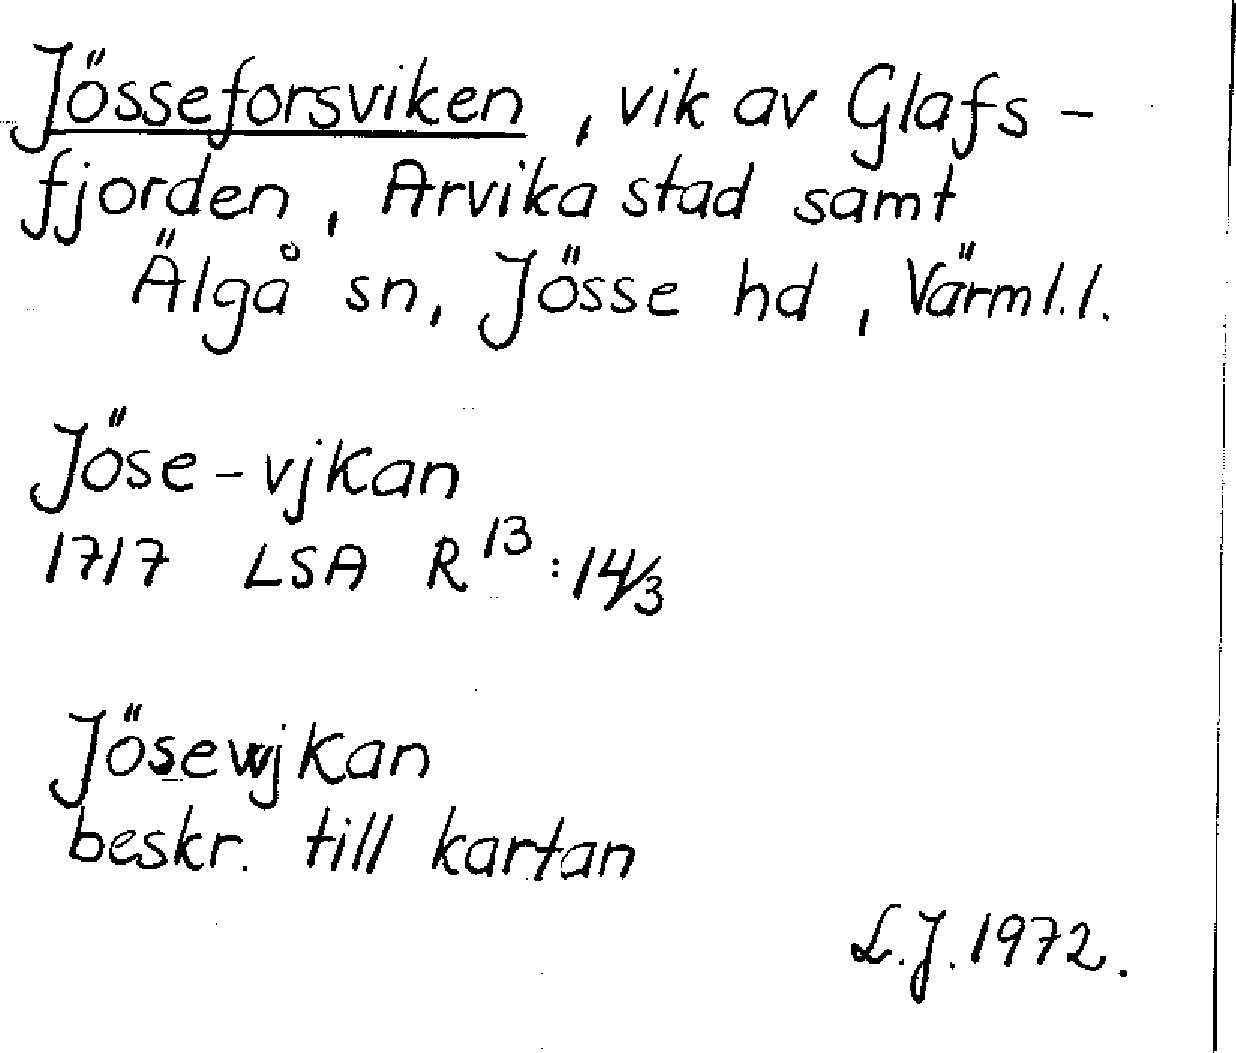 Jösseforsviken, vik av Glafs-
fjorden, Arvika stad samt
Älgå sn, Jösse hd, Värml.l.
Jöse-vjkan
1717 LSA R¹³:14/3
Jösewjkan
beskr. till kartan
L.J. 1972.